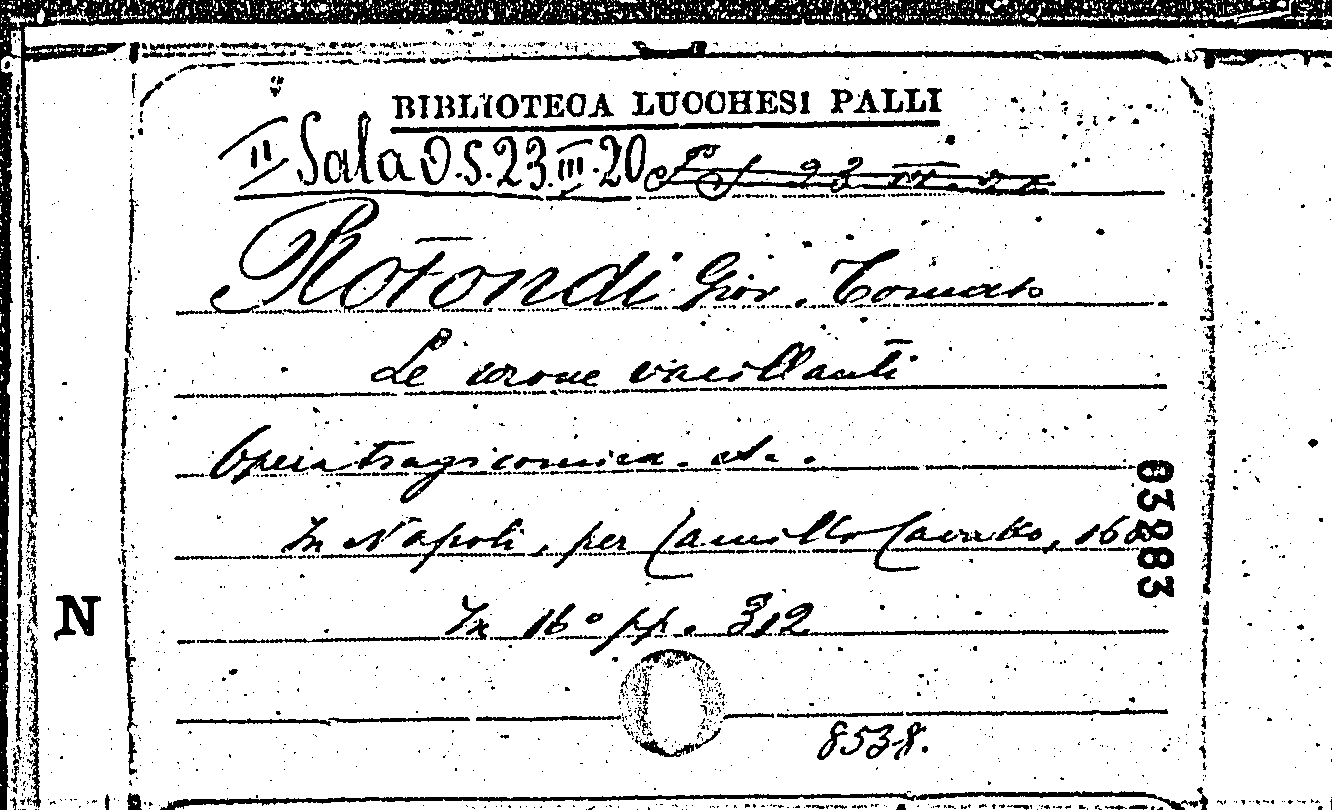 BIBLIOTECA LUCCHESI PALLI
II Sala O.S.23.III.20
Rotondi Giov. Tomaso
Le corone vacillanti
Opera tragicomica. etc.
In Napoli, per Camillo Cavallo, 16
83283
N
In 16° pp. 312
8538.